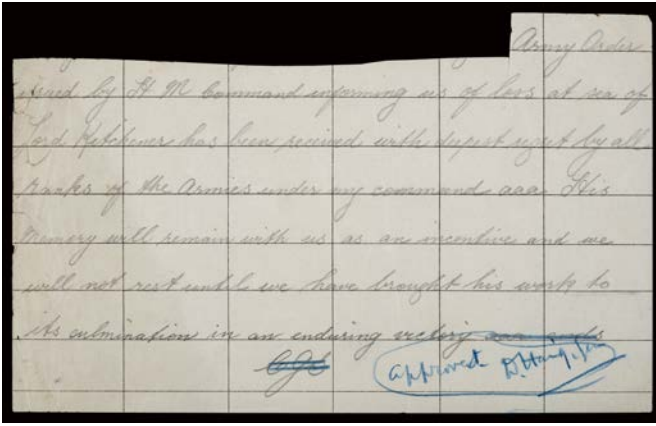 Army Order
issued by H M Command informing us of loss at sea of
Lord Kitchener has been received with deepest regret by all
ranks of the Armies under my command aaa His
memory will remain with us as an incentive and we
will not rest until we have brought his work to
its culmination in an enduring victory aaa ends
approved D. Haig, Gen